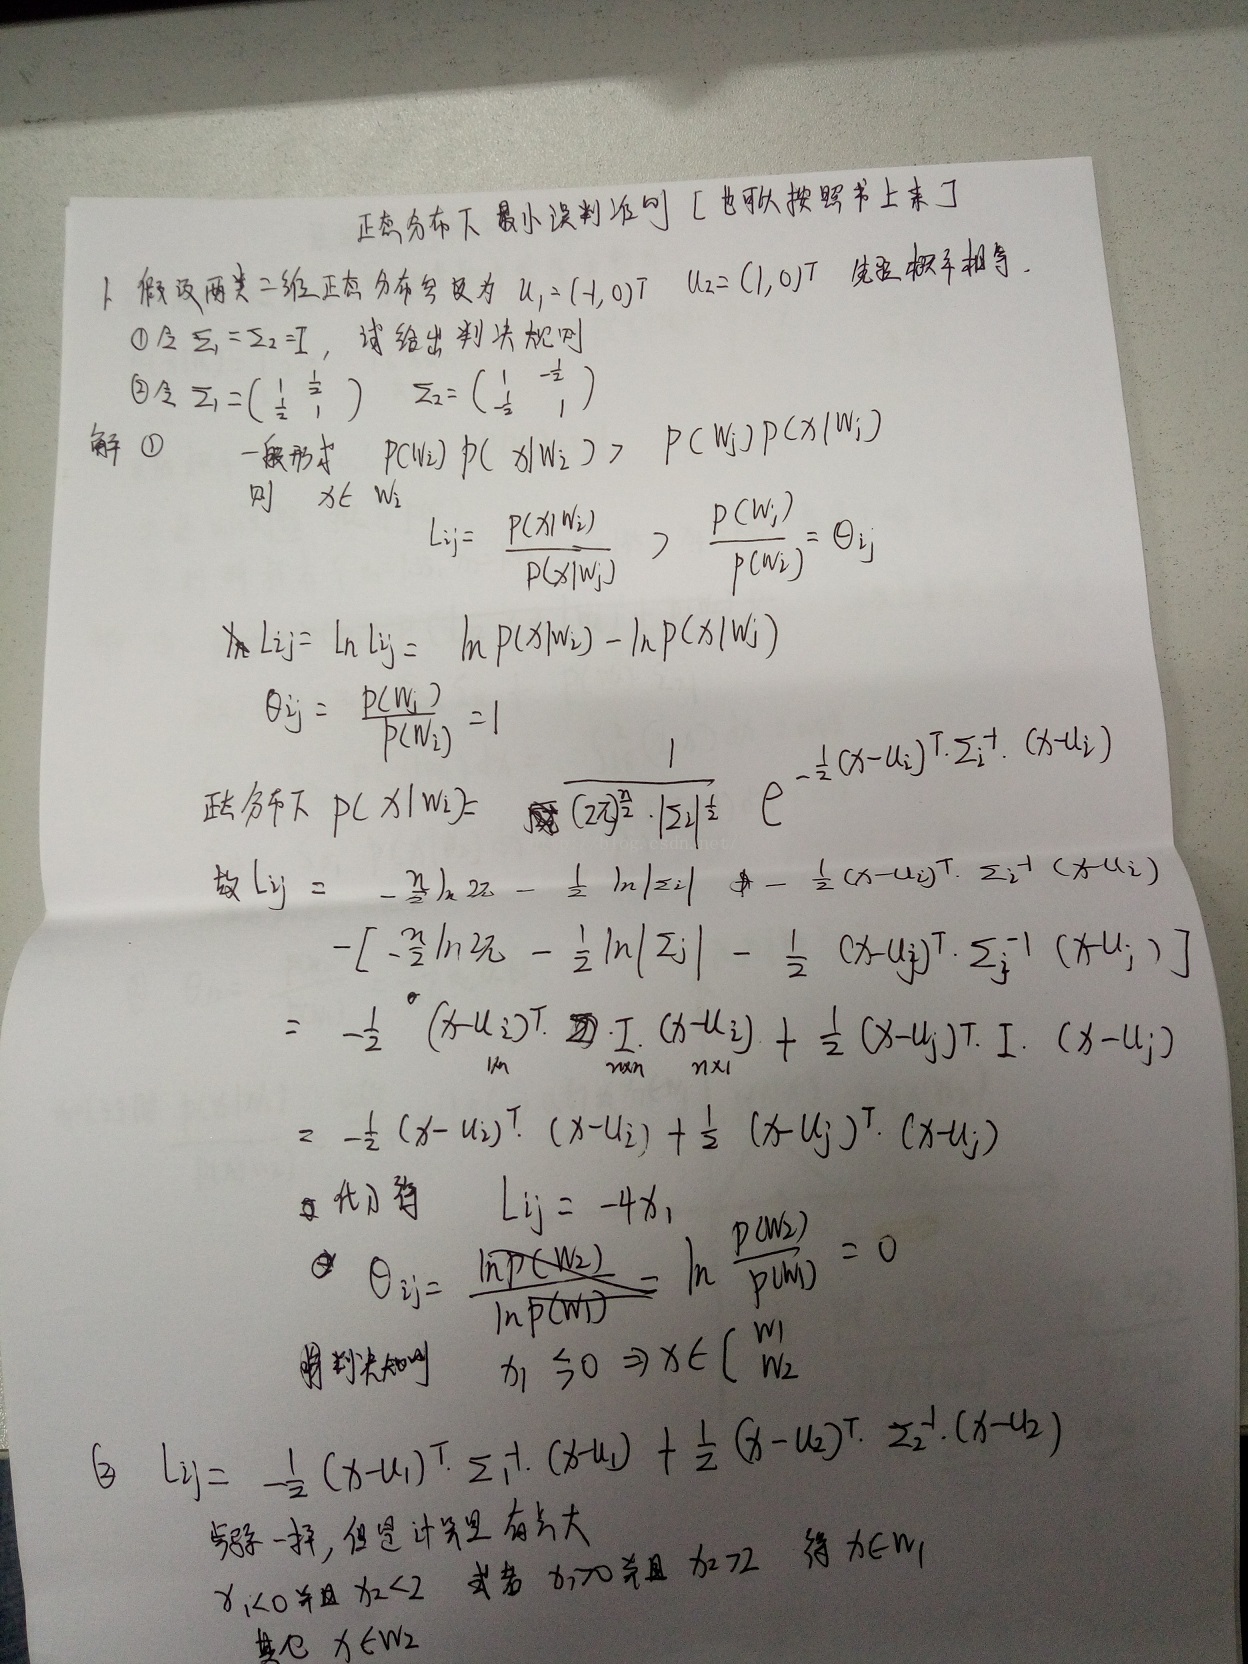 正态分布下 最小误判准则 [也可以按照书上来]
1. 假设两类二维正态分布参数为 u₁=(-1,0)ᵀ u₂=(1,0)ᵀ 先验概率相等.
①令 Σ₁=Σ₂=I, 试给出判决规则
②令 Σ₁=(1 1/2; 1/2 1) Σ₂=(1 -1/2; -1/2 1)
解 ① 一般形式 P(Wi) p(x|Wi) > P(Wj) p(x|Wj)
则 x∈Wi
Lij = p(x|Wi)/p(x|Wj) > p(Wj)/p(Wi) = θij
Lij = ln Lij = ln p(x|Wi) - ln p(x|Wj)
θij = p(Wj)/p(Wi) = 1
正态分布下 p(x|Wi) = 1/((2π)^(n/2)·|Σi|^(1/2)) e^(-1/2(x-ui)ᵀ·Σi⁻¹·(x-ui))
故 Lij = -n/2 ln 2π - 1/2 ln|Σi| - 1/2 (x-ui)ᵀ·Σi⁻¹(x-ui)
-[-n/2 ln 2π - 1/2 ln|Σj| - 1/2 (x-uj)ᵀ·Σj⁻¹(x-uj)]
= -1/2 (x-ui)ᵀ·I·(x-ui) + 1/2 (x-uj)ᵀ·I·(x-uj)
1×n n×n n×1
= -1/2 (x-ui)ᵀ·(x-ui) + 1/2 (x-uj)ᵀ·(x-uj)
代入得 Lij = -4x₁
θij = ln p(W2)/ln p(W1) = ln p(W2)/p(W1) = 0
判决规则 x₁ ≶ 0 ⇒ x∈{W1 W2
② Lij = -1/2 (x-u₁)ᵀ·Σ₁⁻¹·(x-u₁) + 1/2 (x-u₂)ᵀ·Σ₂⁻¹·(x-u₂)
一样, 但是计算量有点大
x₁<0 并且 x₂<2 或者 x₁>0 并且 x₂>2 得 x∈W1
其它 x∈W2